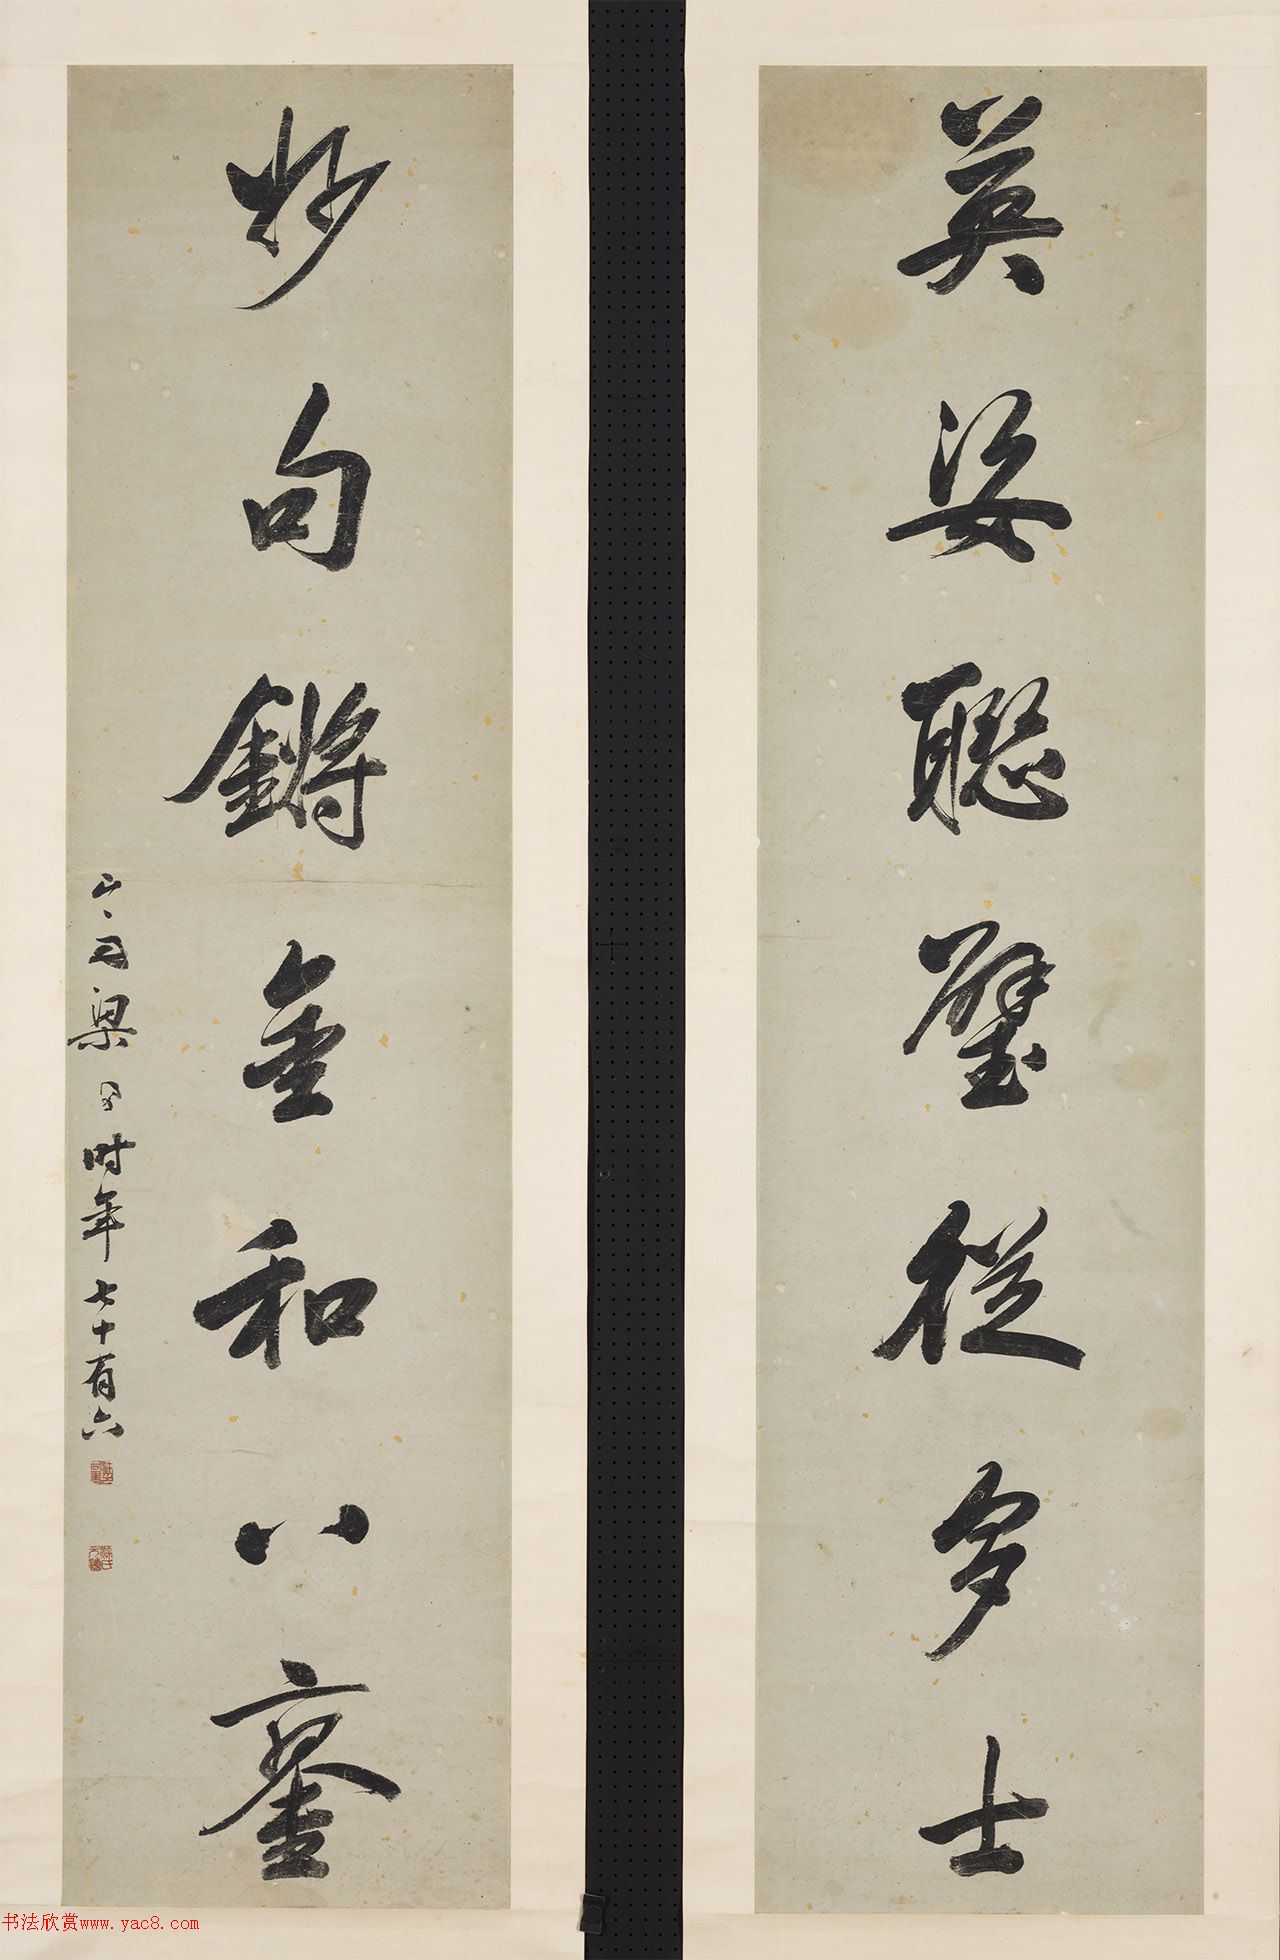 英姿聯璧從多士
妙句鏘金和八鑾
山舟梁同書時年七十有六
书法欣赏www.yac8.com